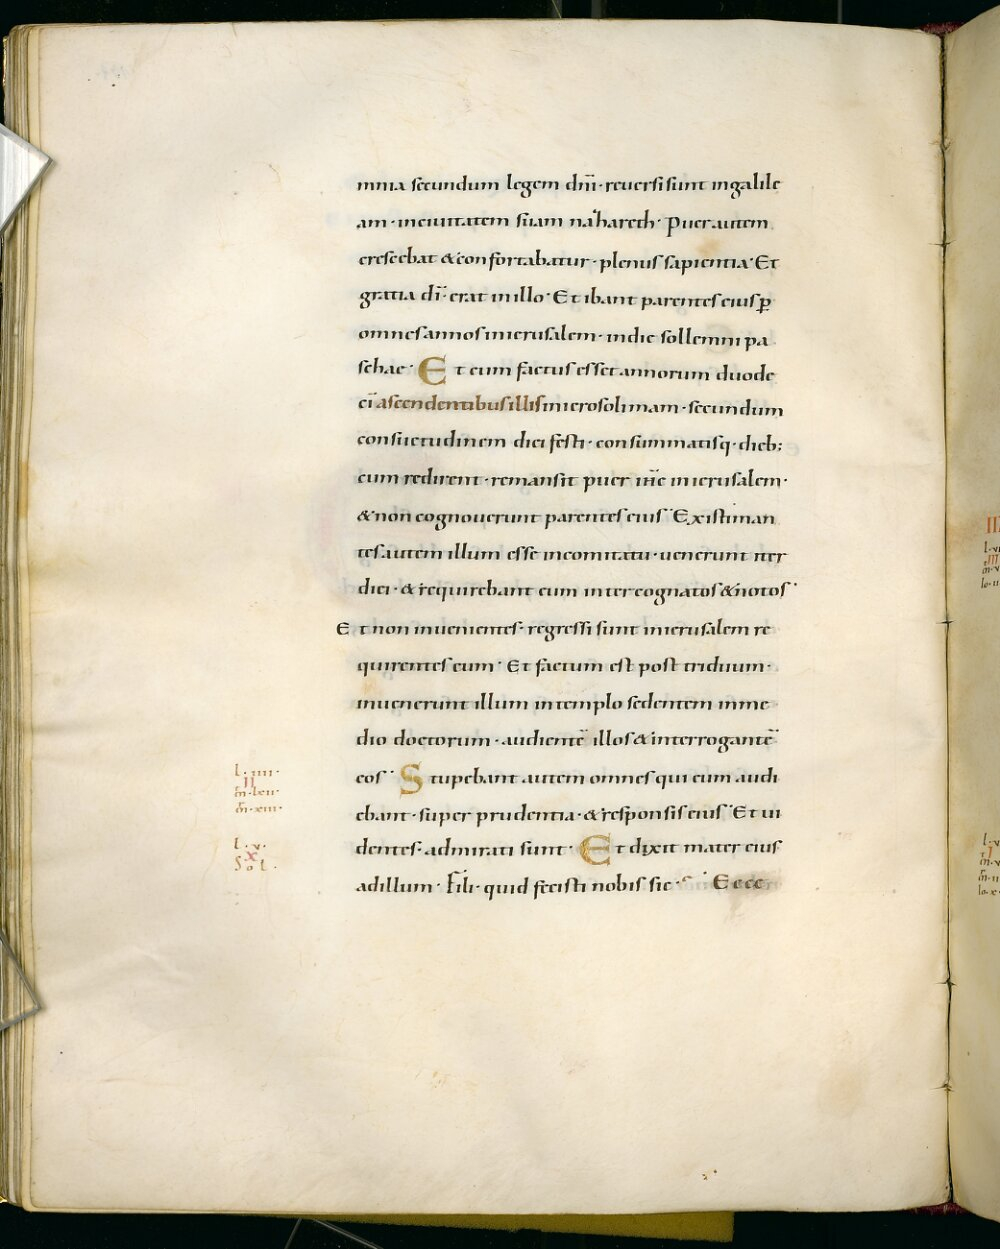 mnia secundum legem dnī· reuersi sunt ingalile
am· inciuitatem suam nazhareth· Puer autem
crescebat &confortabatur· plenus sapientia· Et
gratia dī· erat inillo· Et ibant parentes eius p̄
omnes annos inierusalem· indie sollemni pa
schae· Et cum factus esset annorum duode
cī ascendentibus illis inierosolimam· secundum
consuetudinem diei festi· consummatisq· dieb;
cum redirent· remansit puer ihc inierusalem·
&non cognouerunt parentes eius· Existiman
tes autem illum esse incomitatu· uenerunt iter
diei· &requirebant eum inter cognatos &notos·
Et non inuenientes· regressi sunt inierusalem re
quirentes eum· Et factum est post triduum·
inuenerunt illum intemplo sedentem inme
dio doctorum· audientē illos &interrogantē
eos· Stupebant autem omnes qui eum audi
ebant· super prudentia· &responsis eius· Et ui
dentes· admirati sunt· Et dixit mater eius
adillum· Fili· quid fecisti nobis sic· Ecce
l· iiii·
II
m̄·lxii·
m̄·xiii·
l· v·
x
Sol·